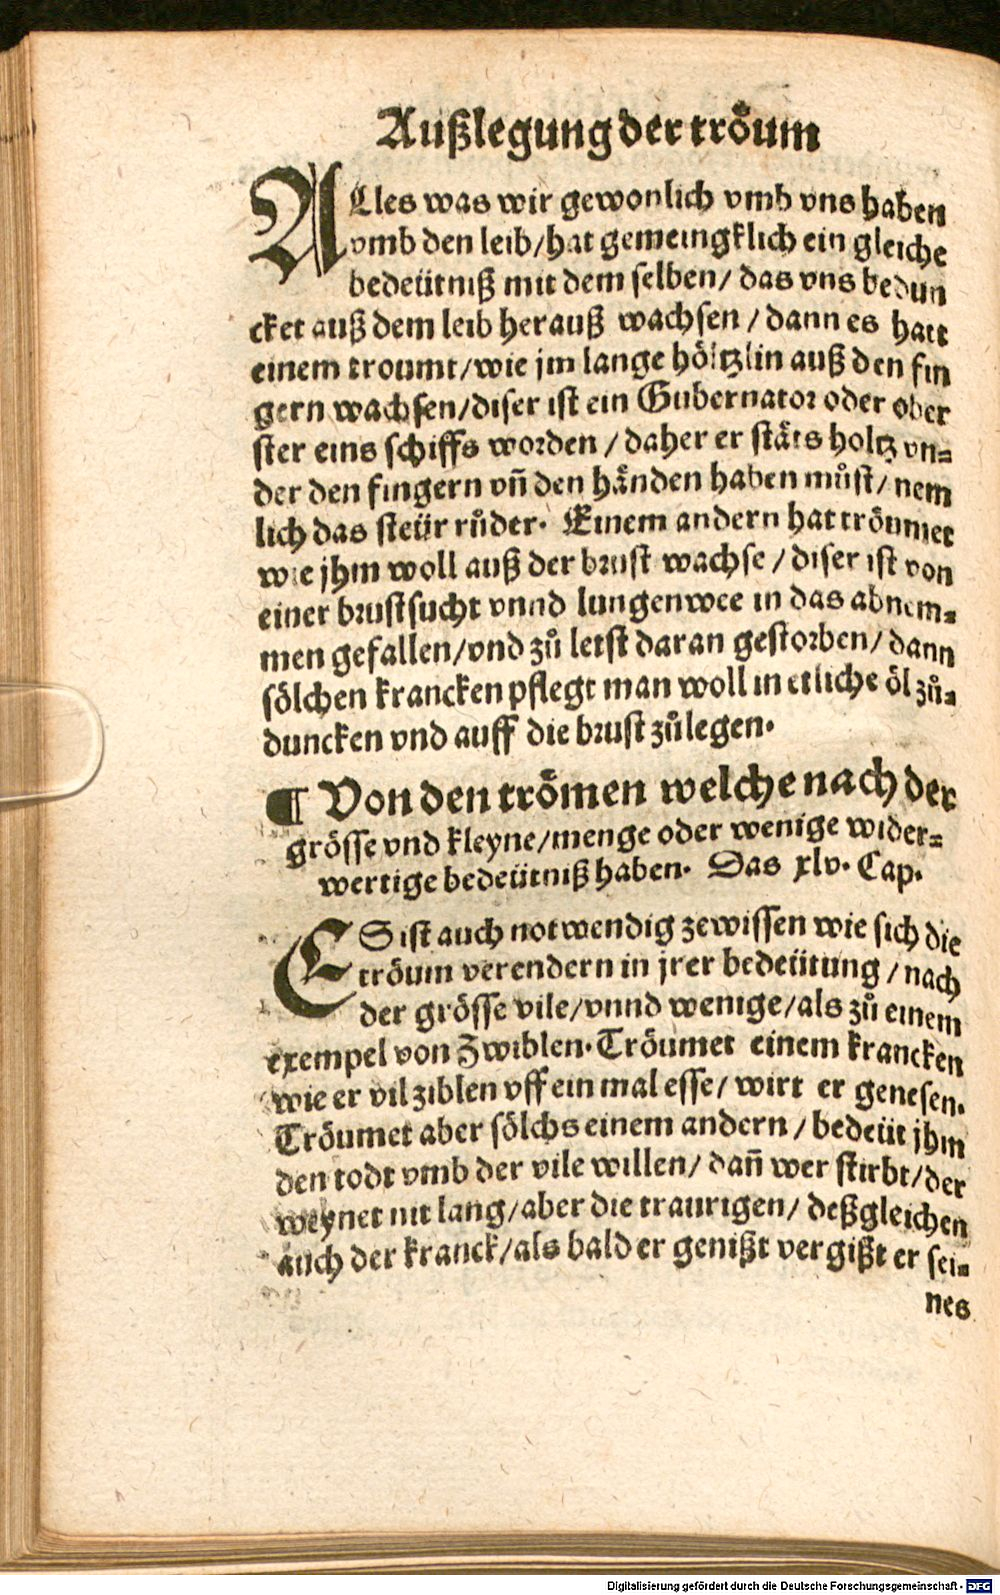 Außlegung der tröum
ALles was wir gewonlich vmb vns haben
vmb den leib/hat gemeingklich ein gleiche
bedeütniß mit dem selben/ das vns bedun
cket auß dem leib herauß wachsen / dann es hatt
einem troumt/wie jm lange höltzlin auß den fin
gern wachsen/diser ist ein Gubernator oder ober
ster eins schiffs worden / daher er stäts holtz vn⸗
der den fingern vñ den händen haben můst/ nem
lich das steür růder. Einem andern hat tröumet
wie jhm woll auß der brust wachse / diser ist von
einer brustsucht vnnd lungenwee in das abnem⸗
men gefallen/vnd zů letst daran gestorben/ dann
sölchen krancken pflegt man woll in etliche öl zů⸗
duncken vnd auff die brust zůlegen.
¶ Von den trömen welche nach der
grösse vnd kleyne/menge oder wenige wider⸗
wertige bedeütniß haben. Das xlv. Cap.
ES ist auch notwendig zewissen wie sich die
tröum verendern in jrer bedeütung / nach
der grösse vile/vnnd wenige/als zů einem
exempel von Zwiblen. Tröumet einem krancken
wie er vil ziblen vff ein mal esse/ wirt er genesen.
Tröumet aber sölchs einem andern / bedeüt jhm
den todt vmb der vile willen/ dañ wer stirbt/der
weynet nit lang/aber die traurigen/ deßgleichen
auch der kranck/als bald er genißt vergißt er sei⸗
nes
Digitalisierung gefördert durch die Deutsche Forschungsgemeinschaft - DFG